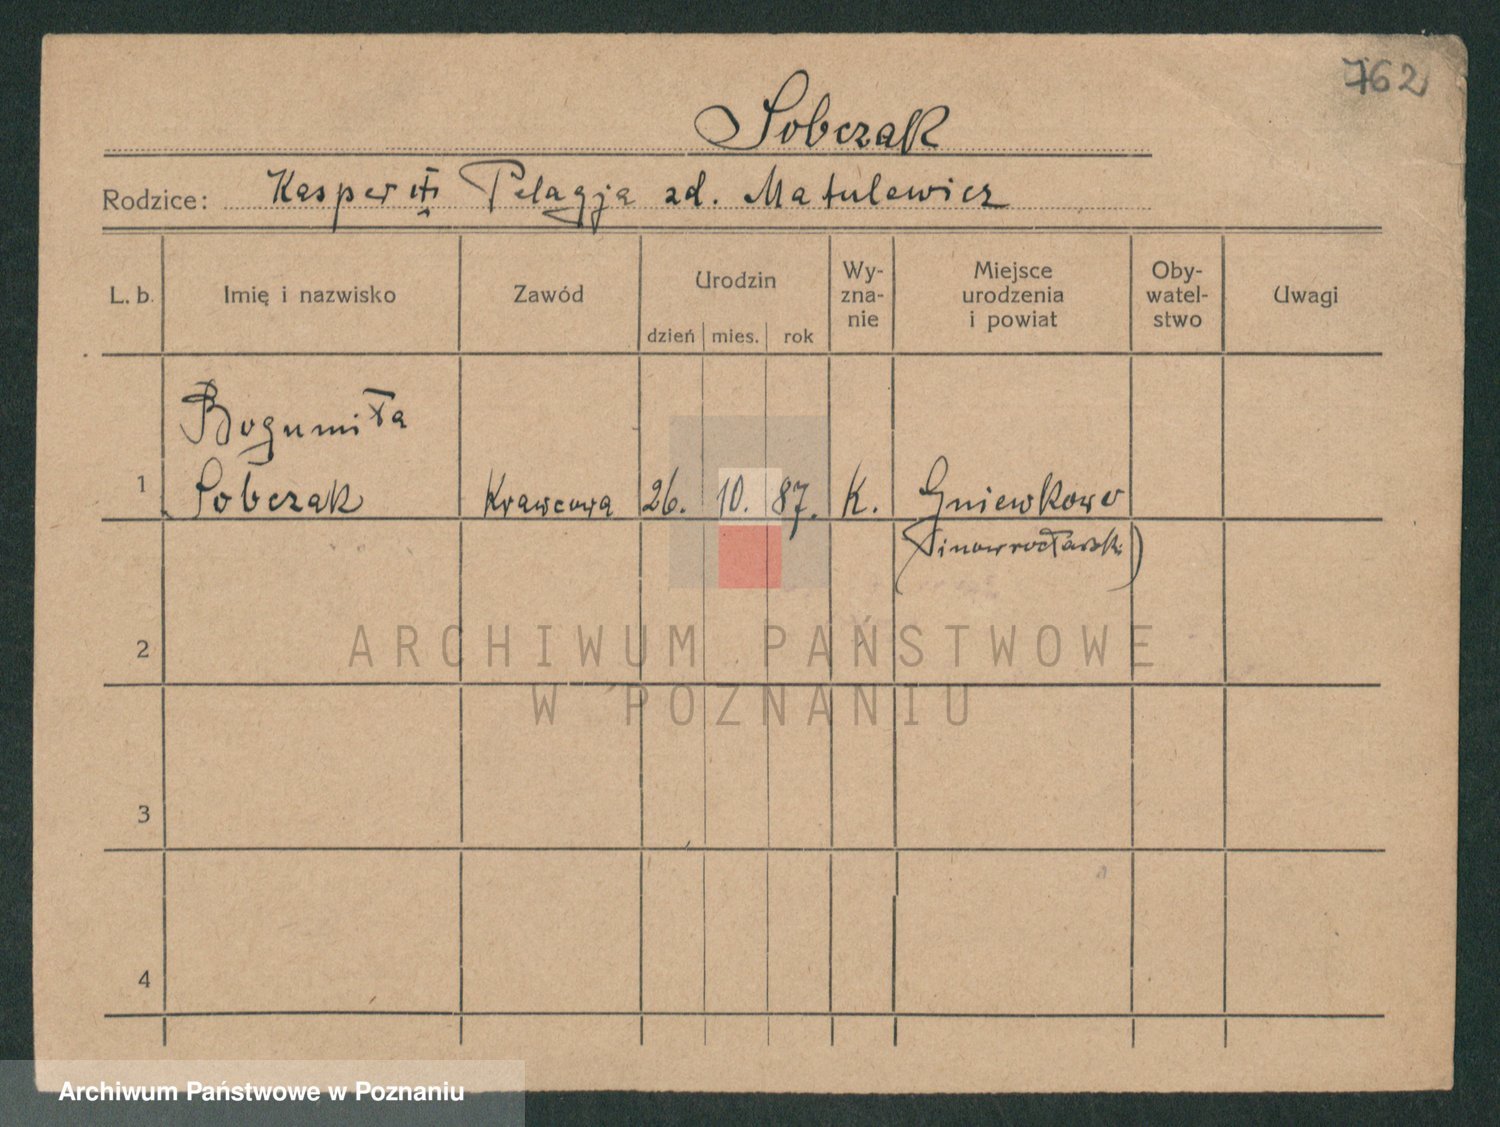 762
Sobczak
Rodzice: Kasper i Pelagja zd. Matulewicz
L. b. Imię i nazwisko Zawód Urodzin dzień mies. rok Wy-zna-nie Miejsce urodzenia i powiat Oby-watel-stwo Uwagi
Bogumiła
1 Sobczak Krawcowa 26. 10. 87. K. Gniewkowo
(inowrocławski)
2
3
4
ARCHIWUM PAŃSTWOWE
W POZNANIU
Archiwum Państwowe w Poznaniu